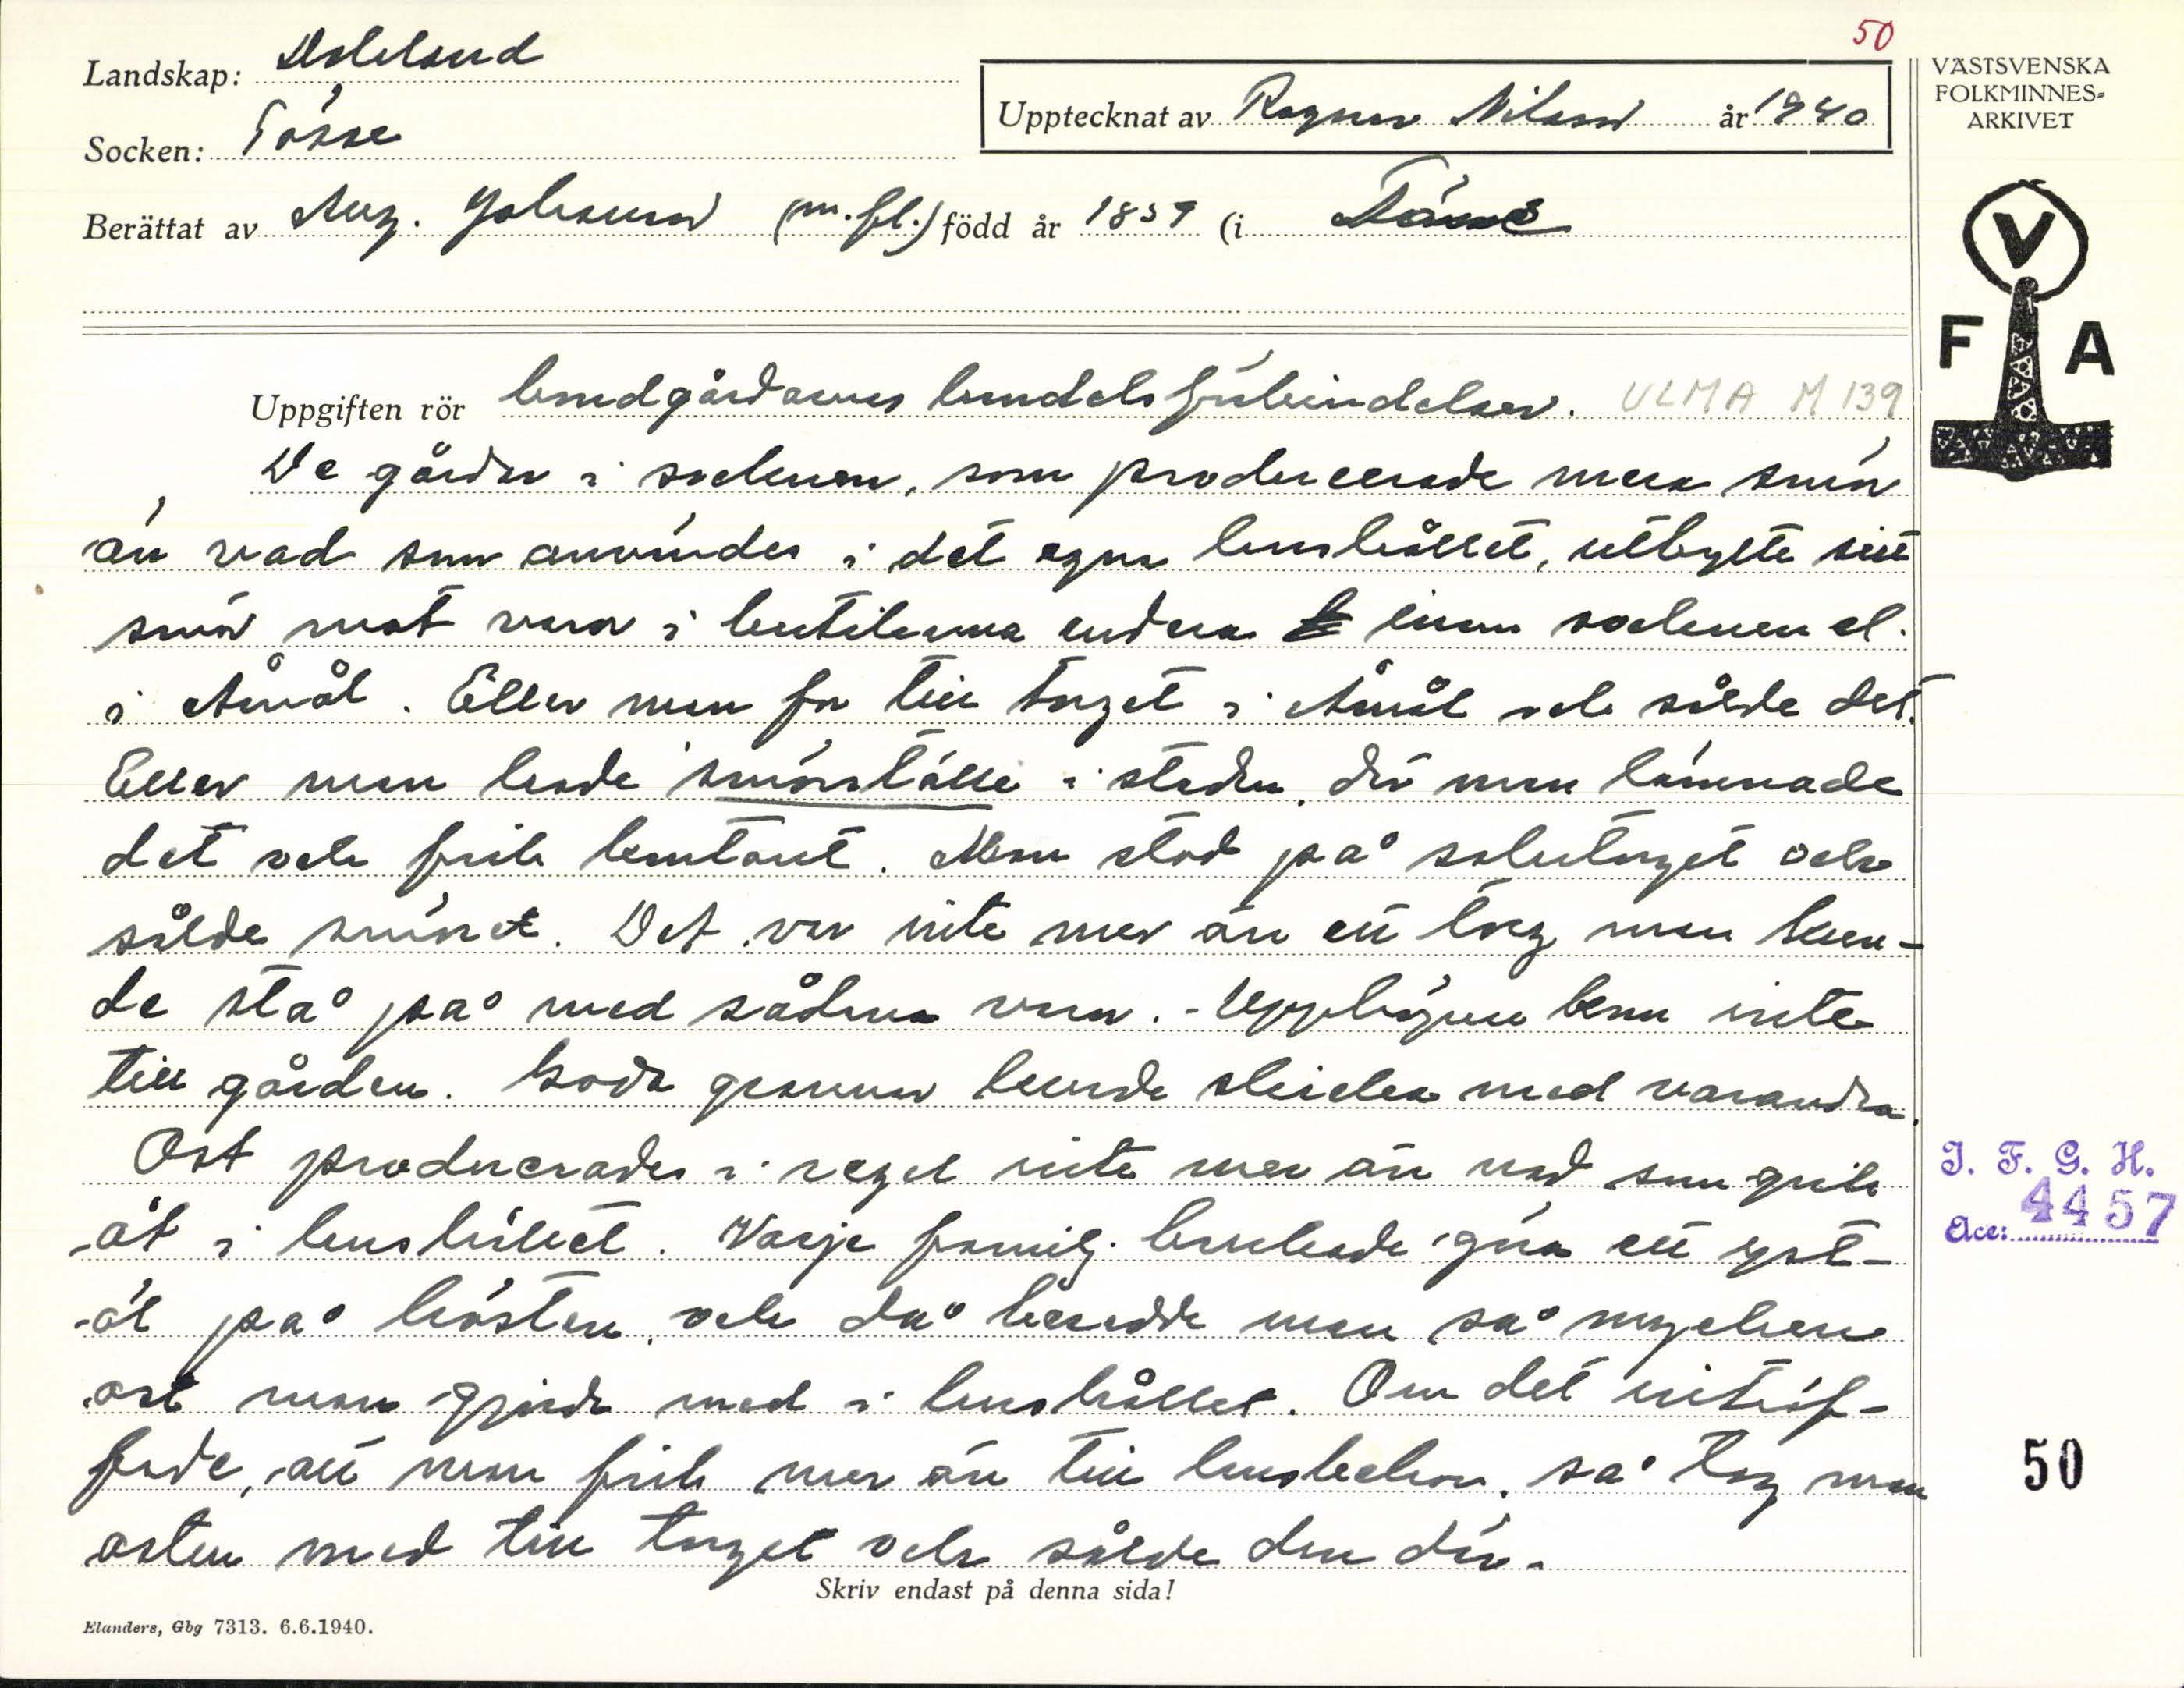 50
Landskap: Dalsland
Socken: Tösse
Upptecknat av Ragnar Nilsson år 1940
VÄSTSVENSKA
FOLKMINNES-
ARKIVET
Berättat av Aug. Johansson (m.fl.) född år 1859 (i Tösse
V
F A
Uppgiften rör bondgårdarnas handelsförbindelser. ULMA M 139
De gårdar i socknen, som producerade mera smör
än vad som användes i det egna hushållet, utbytte sitt
smör mot varor i butikerna endera inom socknen el.
i Åmål. Eller man for till torget i Åmål och sålde det.
Eller man hade smörställe i staden, där man lämnade
det och fick kontant. Man stod på salutorget och
sålde smöret. Det var inte mer än ett torg man kun-
de stå på med sådana varor. - Uppköpare kom inte
till gården. Goda grannar kunde skicka med varandra.
Ost producerades i regel inte mer än vad som gick
åt i hushållet. Varje familj brukade göra ett yst-
öl på hösten, och då beredde man så mycken
ost man gjorde med i hushållet. Om det inträf-
fade, att man fick mer än till husbehov, så tog man
osten med till torget och sålde den där.
Skriv endast på denna sida!
Elanders, Gbg 7313. 6.6.1940.
I. F. G. H.
Acc: 4457
50